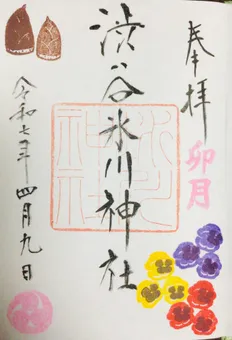 奉拝
卯月
渋谷氷川神社
令和七年四月九日